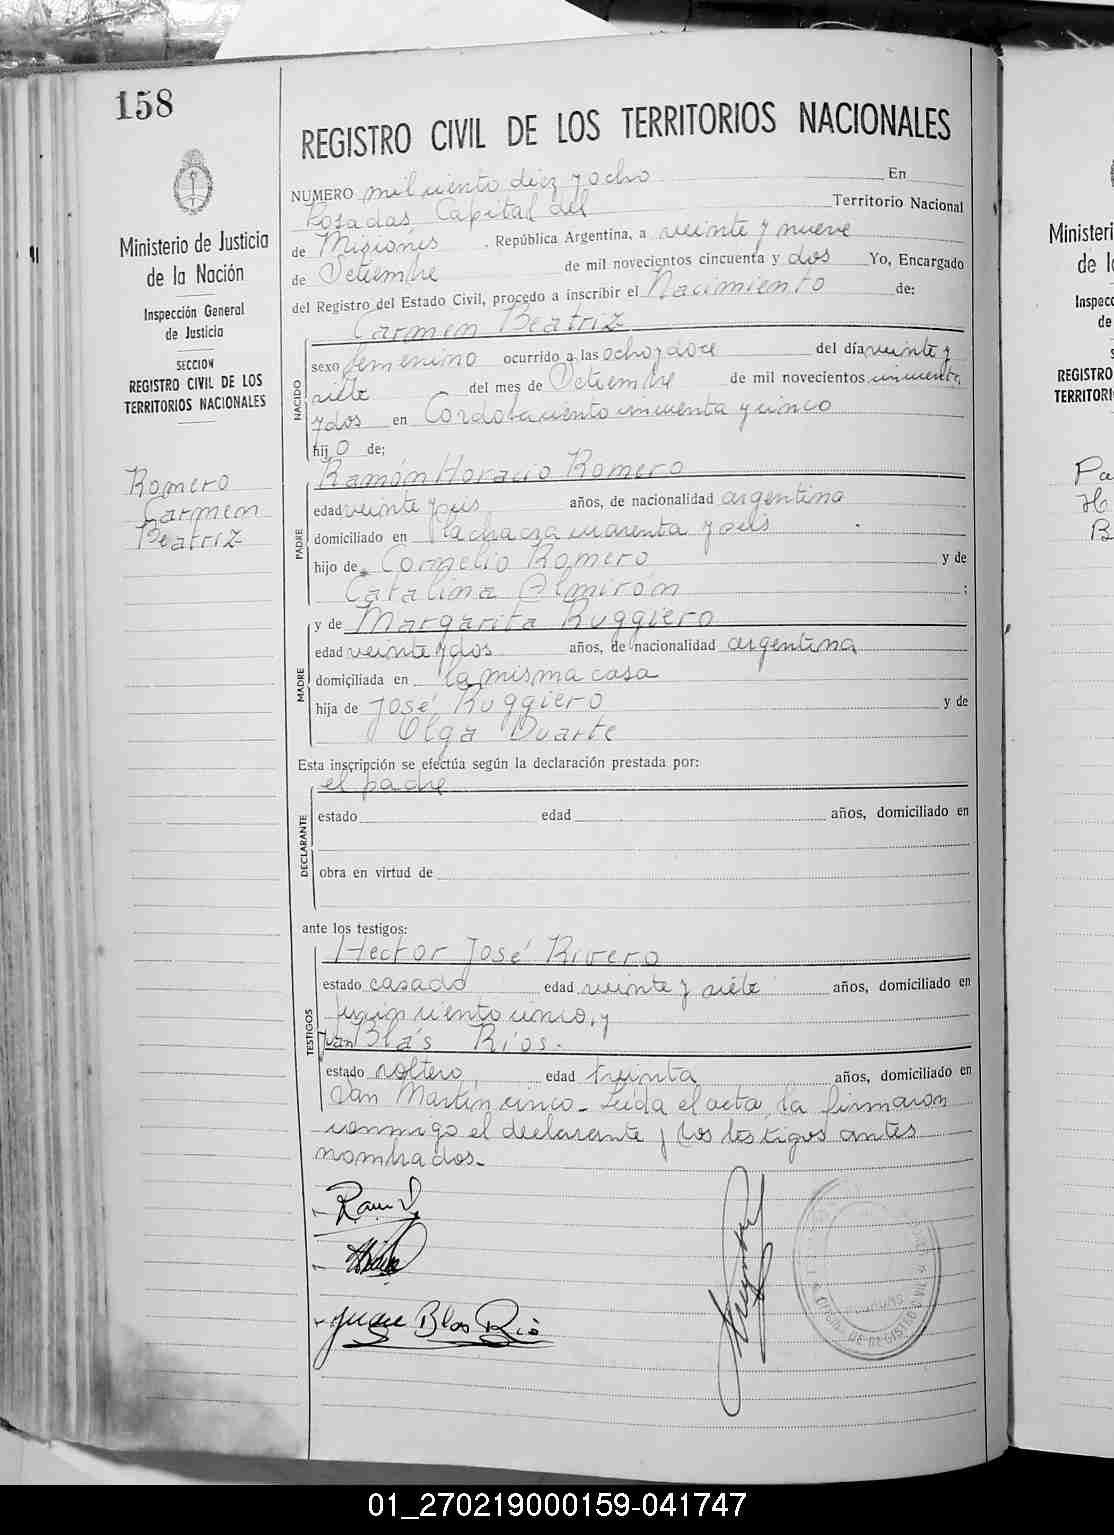 158
REGISTRO CIVIL DE LOS TERRITORIOS NACIONALES
Ministerio de Justicia
de la Nación
Inspección General
de Justicia
SECCION
REGISTRO CIVIL DE LOS
TERRITORIOS NACIONALES
Romero
Carmen
Beatriz
NUMERO mil ciento diez y ocho En
Posadas, Capital del Territorio Nacional
de Misiones , República Argentina, a veinte y nueve
de Setiembre de mil novecientos cincuenta y dos Yo, Encargado
del Registro del Estado Civil, procedo a inscribir el Nacimiento de:
Carmen Beatriz
NACIDO
sexo femenino ocurrido a las ocho y doce del día veinte y
siete del mes de Setiembre de mil novecientos cincuenta
y dos en Cordoba ciento cincuenta y cinco
hij o de;
Ramón Horacio Romero
PADRE
edad veinte y seis años, de nacionalidad argentina
domiciliado en La chacra cuarenta y seis
hijo de Cornelio Romero y de
Catalina Almirón ;
y de Margarita Ruggiero
MADRE
edad veinte y dos años, de nacionalidad argentina
domiciliada en la misma casa
hija de José Ruggiero y de
Olga Duarte
Esta inscripción se efectúa según la declaración prestada por:
el padre
DECLARANTE
estado edad años, domiciliado en
obra en virtud de
ante los testigos:
Hector José Rivero
TESTIGOS
estado casado edad veinte y siete años, domiciliado en
Junin ciento cinco, y
Juan Blás Ríos.
estado soltero, edad treinta años, domiciliado en
San Martín cinco. Leída el acta, la firmaron
conmigo el declarante y los testigos antes
nombrados.
Juan Blas Rios
OFICINA DE REGISTRO
MISIONES
Ministeri
de l
Inspecc
de
S
REGISTRO
TERRITORI
Pa
H
B
01_270219000159-041747